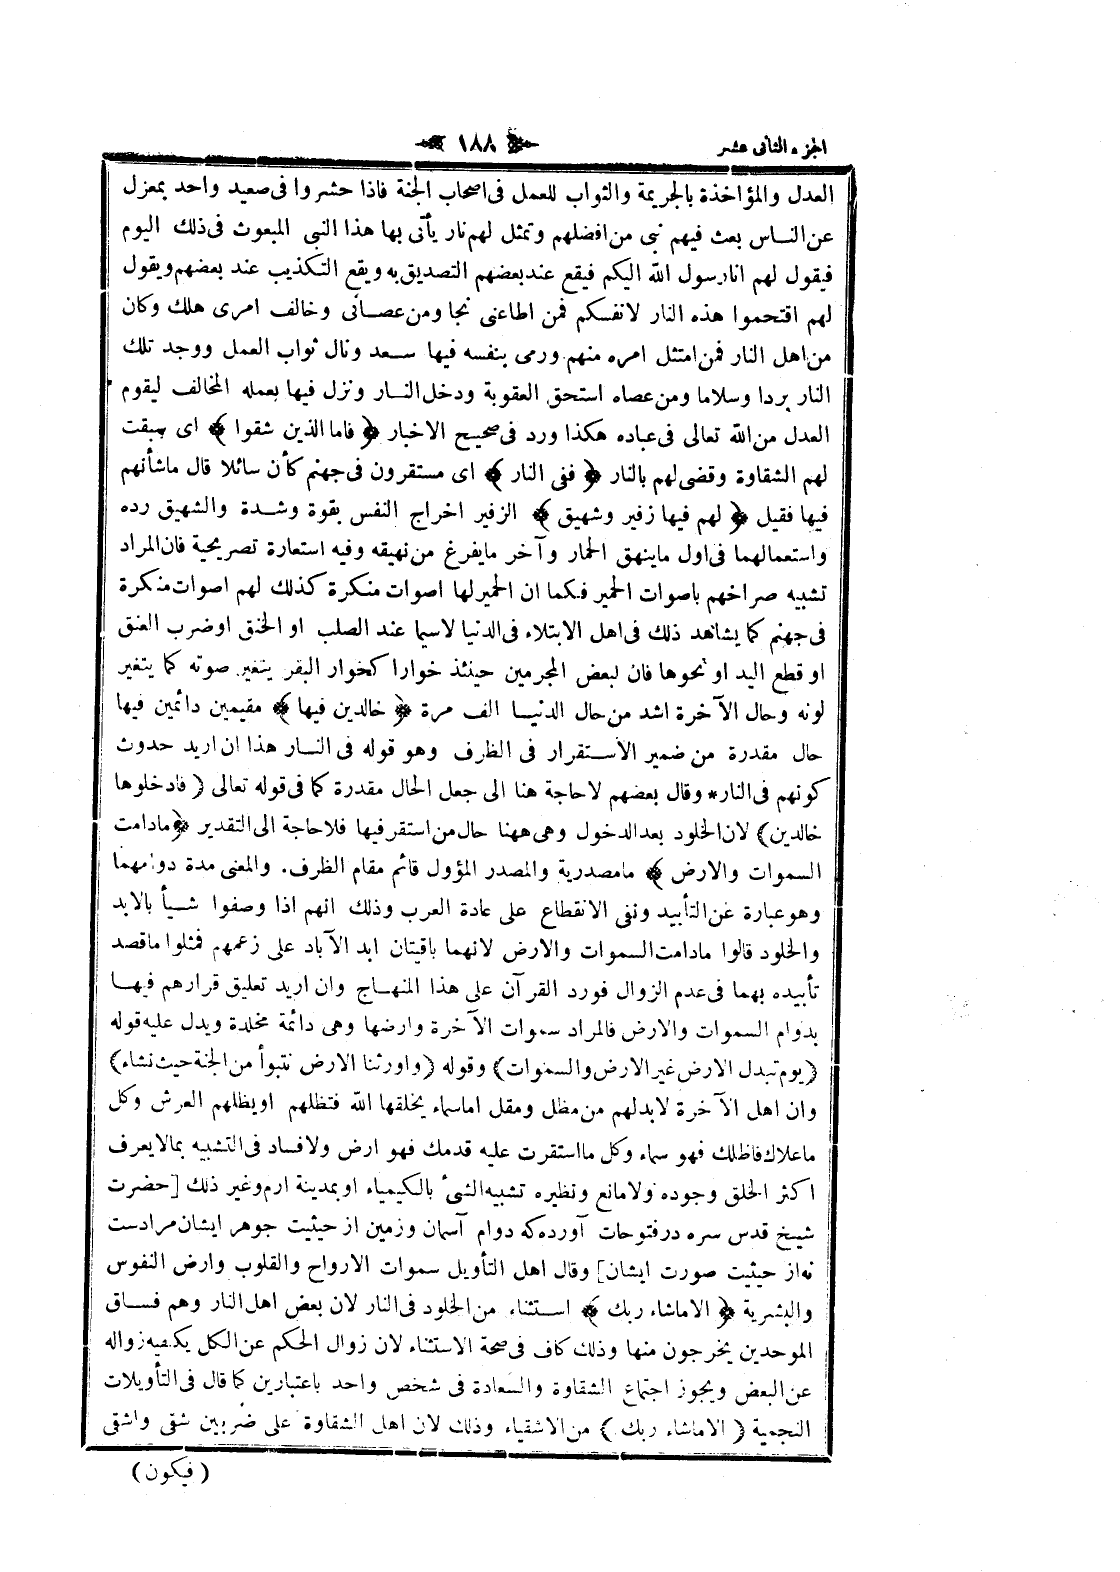 الجزء الثانى عشر
١٨٨
العدل والمؤاخذة بالجريمة والثواب للعمل فى اصحاب الجنة فاذا حشروا فى صعيد واحد بمعزل
عن الناس بعث فيهم نبى من افضلهم وتمثل لهم نار يأتى بها هذا النبى المبعوث فى ذلك اليوم
فيقول لهم انا رسول الله اليكم فيقع عند بعضهم التصديق به ويقع التكذيب عند بعضهم ويقول
لهم اقتحموا هذه النار لانفسكم فمن اطاعنى نجا ومن عصانى وخالف امرى هلك وكان
من اهل النار فمن امتثل امره منهم ورمى بنفسه فيها سعد ونال ثواب العمل ووجد تلك
النار بردا وسلاما ومن عصاه استحق العقوبة ودخل النار ونزل فيها بعمله المخالف ليقوم
العدل من الله تعالى فى عباده هكذا ورد فى صحيح الاخبار ﴿ فاما الذين شقوا ﴾ اى سبقت
لهم الشقاوة وقضى لهم بالنار ﴿ ففى النار ﴾ اى مستقرون فى جهنم كأن سائلا قال ماشأنهم
فيها فقيل ﴿ لهم فيها زفير وشهيق ﴾ الزفير اخراج النفس بقوة وشدة والشهيق رده
واستعمالهما فى اول ماينهق الحمار وآخر مايفرغ من نهيقه وفيه استعارة تصريحية فان المراد
تشبيه صراخهم باصوات الحمير فكما ان الحمير لها اصوات منكرة كذلك لهم اصوات منكرة
فى جهنم كما يشاهد ذلك فى اهل الابتلاء فى الدنيا لاسيما عند الصلب او الخنق او ضرب العنق
او قطع اليد او نحوها فان لبعض المجرمين حينئذ خوارا كخوار البقر يتغير صوته كما يتغير
لونه وحال الآخرة اشد من حال الدنيا الف مرة ﴿ خالدين فيها ﴾ مقيمين دائمين فيها
حال مقدرة من ضمير الاستقرار فى الظرف وهو قوله فى النار هذا ان اريد حدوث
كونهم فى النار* وقال بعضهم لاحاجة هنا الى جعل الحال مقدرة كما فى قوله تعالى ( فادخلوها
خالدين) لان الخلود بعد الدخول وهى ههنا حال من استقر فيها فلاحاجة الى التقدير ﴿ مادامت
السموات والارض ﴾ مامصدرية والمصدر المؤول قائم مقام الظرف. والمعنى مدة دوامهما
وهو عبارة عن التأبيد ونفى الانقطاع على عادة العرب وذلك انهم اذا وصفوا شيأ بالابد
والخلود قالوا مادامت السموات والارض لانهما باقيتان ابد الآباد على زعمهم فمثلوا ماقصد
تأبيده بهما فى عدم الزوال فورد القرآن على هذا المنهاج وان اريد تعليق قرارهم فيها
بدوام السموات والارض فالمراد سموات الآخرة وارضها وهى دائمة مخلدة ويدل عليه قوله
(يوم تبدل الارض غير الارض والسموات) وقوله (واورثنا الارض نتبوأ من الجنة حيث نشاء)
وان اهل الآخرة لابدلهم من مظل ومقل اماسماء يخلقها الله فتظلهم او يظلهم العرش وكل
ماعلاك فاظلك فهو سماء وكل مااستقرت عليه قدمك فهو ارض ولافساد فى التشبيه بمالايعرف
اكثر الخلق وجوده ولامانع ونظيره تشبيه الشئ بالكيمياء او بمدينة ارم وغير ذلك [حضرت
شيخ قدس سره درفتوحات آورده كه دوام آسمان وزمين از حيثيت جوهر ايشان مرادست
نه از حيثيت صورت ايشان] وقال اهل التأويل سموات الارواح والقلوب وارض النفوس
والبشرية ﴿ الاماشاء ربك ﴾ استثناء من الخلود فى النار لان بعض اهل النار وهم فساق
الموحدين يخرجون منها وذلك كاف فى صحة الاستثناء لان زوال الحكم عن الكل يكفيه زواله
عن البعض ويجوز اجتماع الشقاوة والسعادة فى شخص واحد باعتبارين كما قال فى التأويلات
النجمية ( الاماشاء ربك ) من الاشقياء وذلك لان اهل الشقاوة على ضربين شقى واشقى
( فيكون)